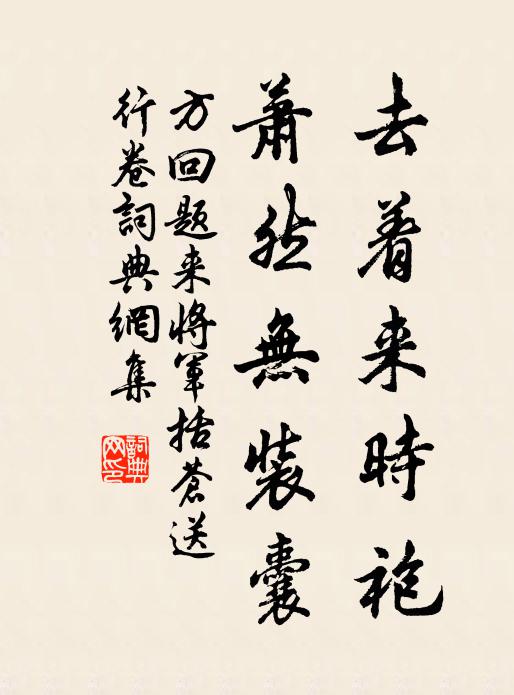 去着来時袍
蕭然無裝囊
方回题来将軍括蒼送
行卷詞典網集
詞典
网印